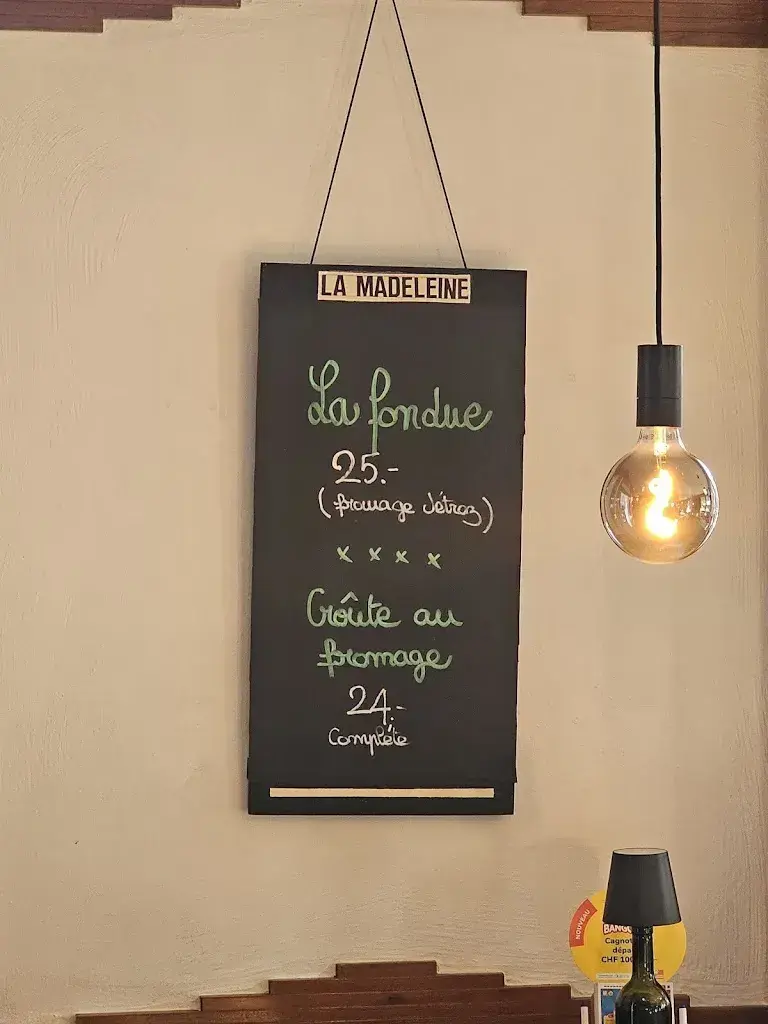 LA MADELEINE
La fondue
25.-
(fromage d'étroz)
x x x x
Croûte au
fromage
24.-
Complète
NOUVEAU
CHF 10